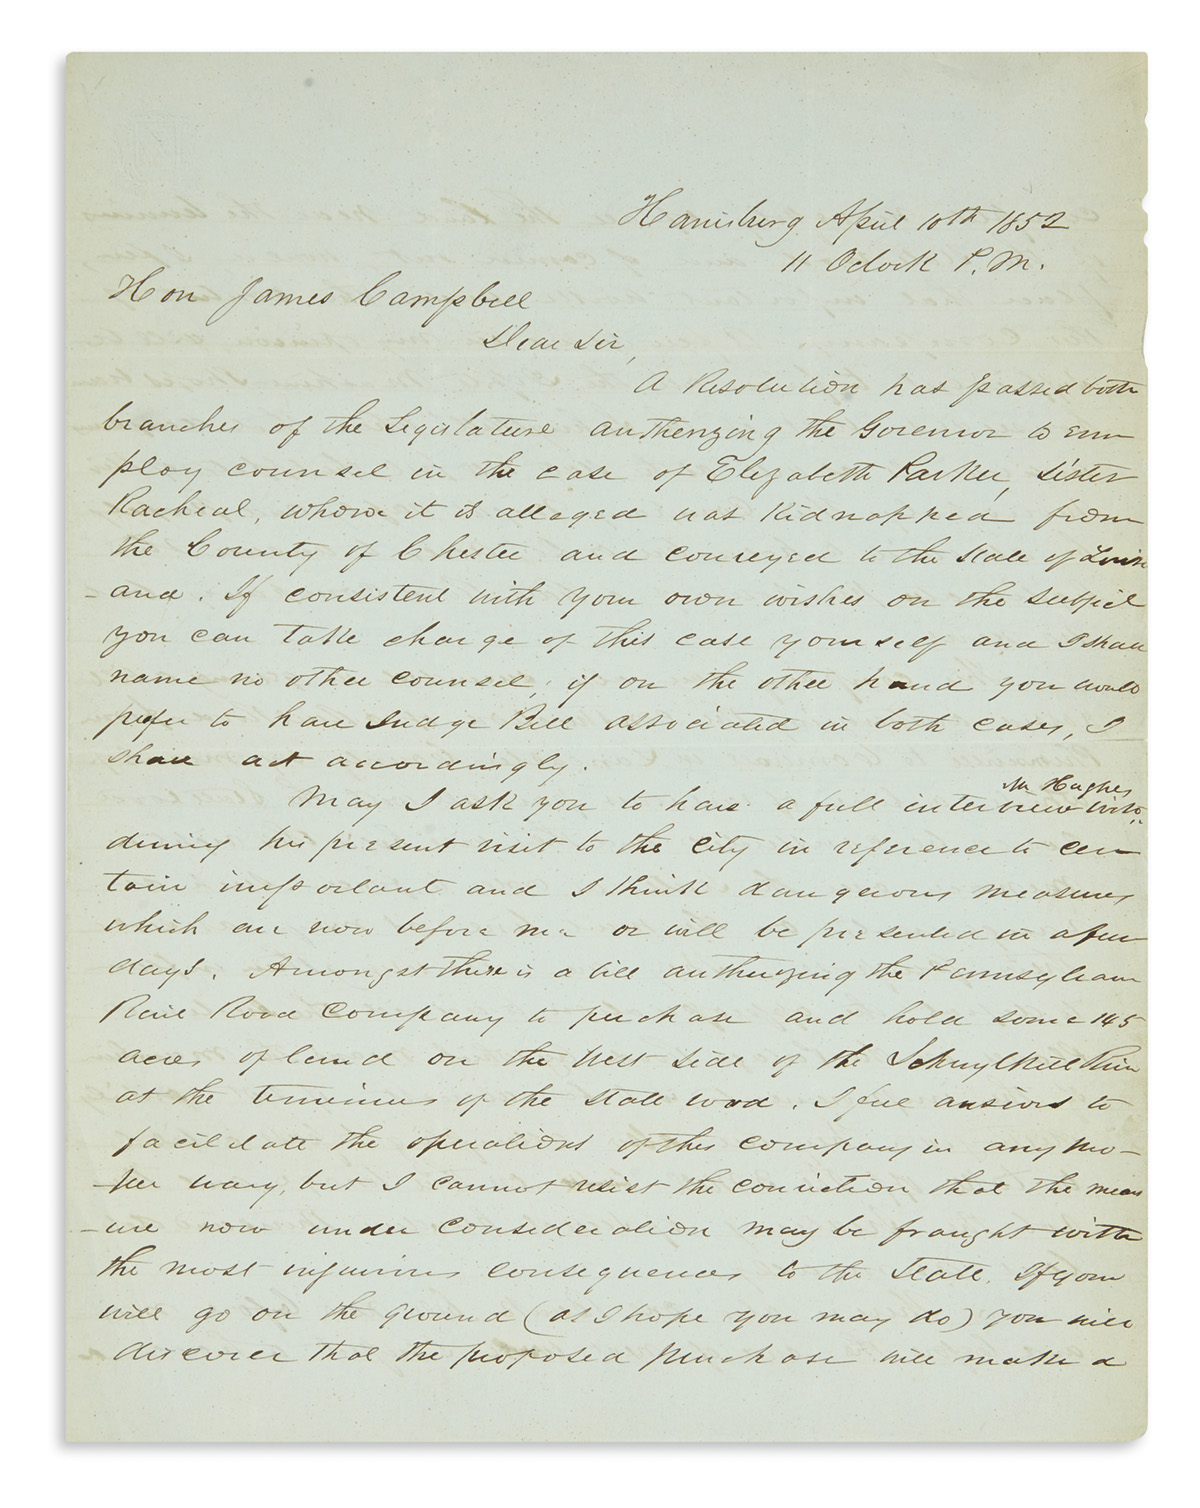 Harrisburg April 10th 1852
11 Oclock P.M.
Hon James Campbell
Dear Sir,
A Resolution has passed both
branches of the Legislature authorizing the Governor to em
ploy counsel in the case of Elizabeth Parker, sister
Racheal, whom it is alleged was Kidnapped from
the County of Chester and conveyed to the State of Louisi
-ana. If consistent with your own wishes on the subject
you can take charge of this case yourself and I shall
name no other counsel, if on the other hand you would
prefer to have Judge Bell associated in both cases, I
shall act accordingly.
Mr Hughes
May I ask you to have a full interview with
during his present visit to the city in reference to cer
tain important and I think dangerous measures
which are now before me or will be presented in a few
days. Amongst these is a bill authorizing the Pennsylvania
Rail Road Company to purchase and hold some 145
acres of land on the West side of the Schuylkill River
at the terminus of the State road. I feel anxious to
facilitate the operations of this company in any pro-
-per way, but I cannot resist the conviction that the meas
-ure now under consideration may be fraught with
the most injurious consequences to the State. If you
will go on the ground (as I hope you may do) you will
discover that the proposed purchase will make a